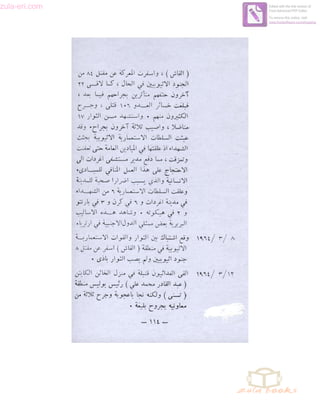 zula-eri.com
Edited with the trial version of
Foxit Advanced PDF Editor
To remove this notice, visit:
www.foxitsoftware.com/shopping
( القاش ) ، واسفرت المعركة عن مقتل ٨٤ من
الجنود الاثيوبيين في الحال ، كما لاقى ٢٢
آخرون حتفهم متأثرين بجراحهم فيما بعد ،
فبلغت خسائر العدو ١٠٦ قتلى ، وجرح
الكثيرون منهم ٠ واستشهد من الثوار ١٧
مناضلا ، واصيب ثلاثة آخرون بجراح٠ وقد
عبثت السلطات الاستعمارية الاثيوبية بجثث
الشهداء اذ علقتها في الميادين العامة حتى تعفنت
وتمزقت ، مما دفع مدير مستشفى اغردات الى
الاحتجاج على هذا العمل المنافي للمبادىء
الانسانية والذي يسبب اضرارا صحية للمدينة
وعلقت السلطات الاستعمارية ٦ من الشهداء
في مدينة اغردات و ٦ في كرن و ٣ في بارنتو
و ٢ في هيكوته ٠ وشاهد هذه الاساليب
البربرية بعض ممثلي الدول الاجنبية في ارتريا٠
٨ / ٣ / ١٩٦٤ وقع اشتباك بين الثوار والقوات الاستعمارية
الاثيوبية في منطقة ( القاش ) اسفر عن مقتل ٨
جنود اثيوبيين ولم يصب الثوار بأذى ٠
١٢/ ٣ / ١٩٦٤ القى الفدائيون قنبلة في منزل الخائن
( عبد القادر محمد علي ) رئيس بوليس منطقة
( تسني ) ولكنه نجا باعجوبة وجرح ثلاثة من
معاونيه بجروح بليغة ٠
— ١١٤ —